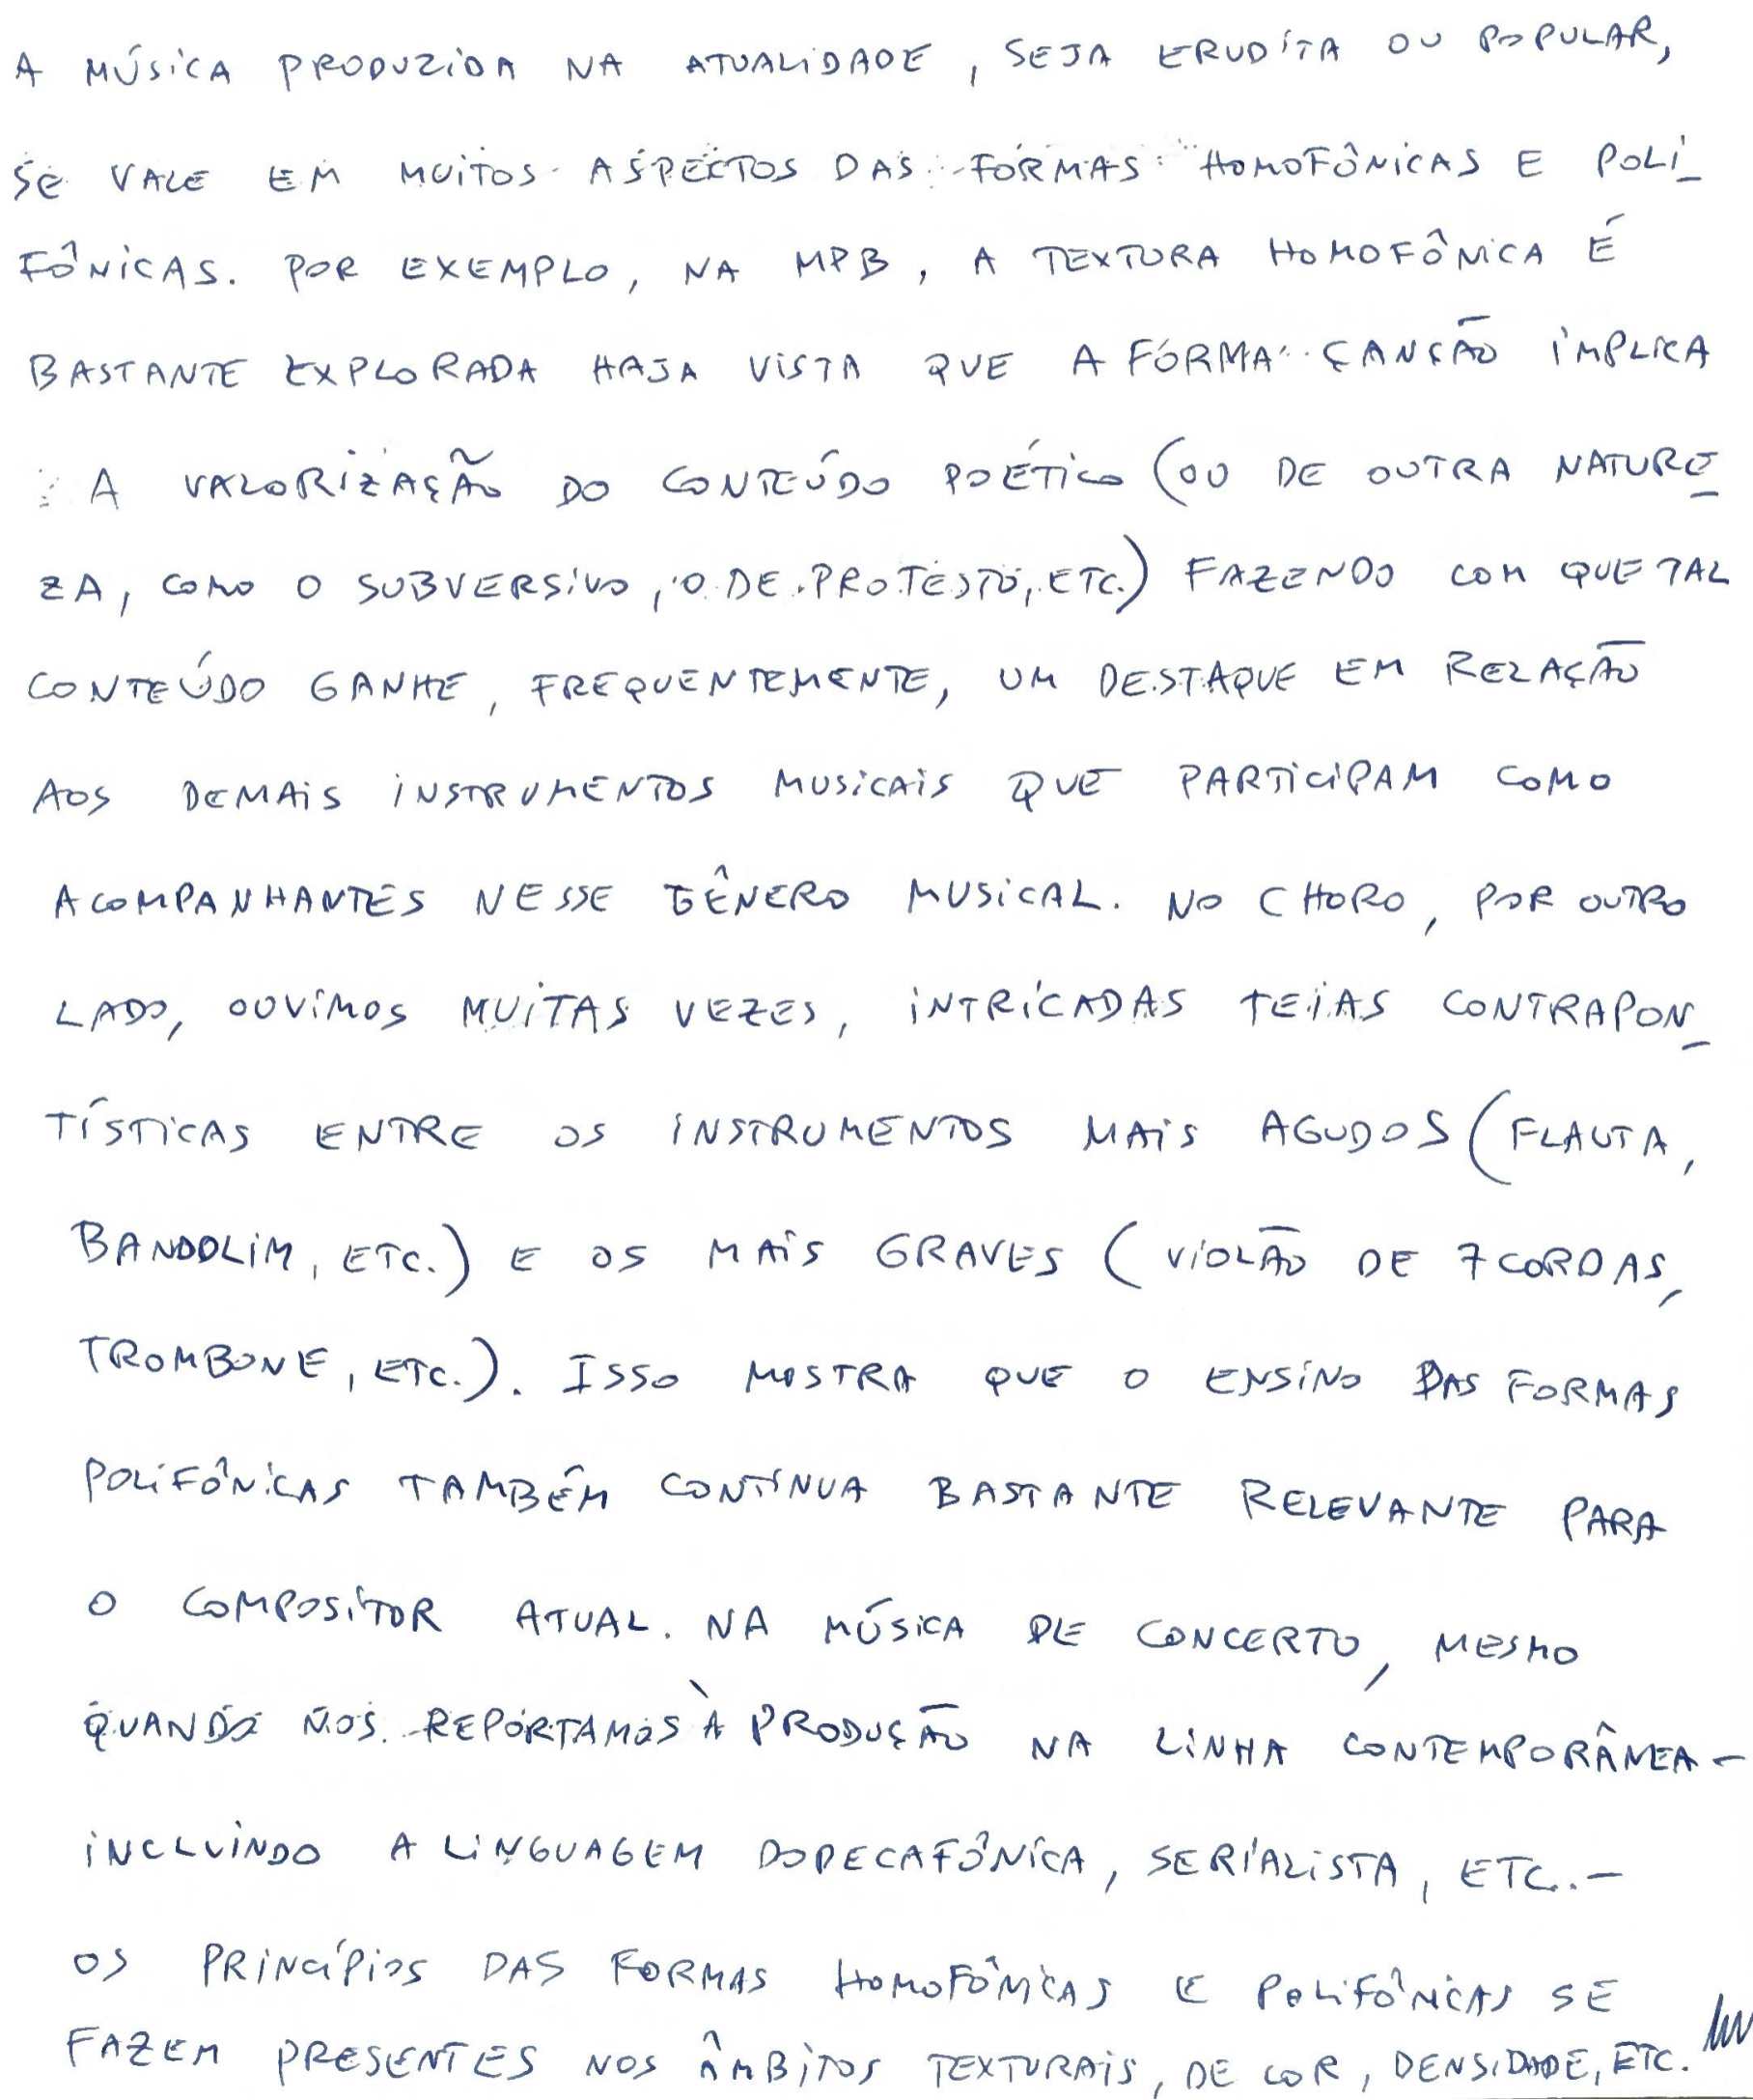 A MÚSICA PRODUZIDA NA ATUALIDADE, SEJA ERUDITA OU POPULAR,
SE VALE EM MUITOS ASPECTOS DAS FORMAS HOMOFÔNICAS E POLI-
FÔNICAS. POR EXEMPLO, NA MPB, A TEXTURA HOMOFÔNICA É
BASTANTE EXPLORADA HAJA VISTA QUE A FORMA CANÇÃO IMPLICA
A VALORIZAÇÃO DO CONTEÚDO POÉTICO (OU DE OUTRA NATURE-
ZA, COMO O SUBVERSIVO, O DE PROTESTO, ETC.) FAZENDO COM QUE TAL
CONTEÚDO GANHE, FREQUENTEMENTE, UM DESTAQUE EM RELAÇÃO
AOS DEMAIS INSTRUMENTOS MUSICAIS QUE PARTICIPAM COMO
ACOMPANHANTES NESSE GÊNERO MUSICAL. NO CHORO, POR OUTRO
LADO, OUVIMOS MUITAS VEZES, INTRICADAS TEIAS CONTRAPON-
TÍSTICAS ENTRE OS INSTRUMENTOS MAIS AGUDOS (FLAUTA,
BANDOLIM, ETC.) E OS MAIS GRAVES (VIOLÃO DE 7 CORDAS,
TROMBONE, ETC.). ISSO MOSTRA QUE O ENSINO DAS FORMAS
POLIFÔNICAS TAMBÉM CONTÍNUA BASTANTE RELEVANTE PARA
O COMPOSITOR ATUAL. NA MÚSICA DE CONCERTO, MESMO
QUANDO NOS REPORTAMOS À PRODUÇÃO NA LINHA CONTEMPORÂNEA -
INCLUINDO A LINGUAGEM DODECAFÔNICA, SERIALISTA, ETC. -
OS PRINCÍPIOS DAS FORMAS HOMOFÔNICAS E POLIFÔNICAS SE
FAZEM PRESENTES NOS ÂMBITOS TEXTURAIS, DE COR, DENSIDADE, ETC.